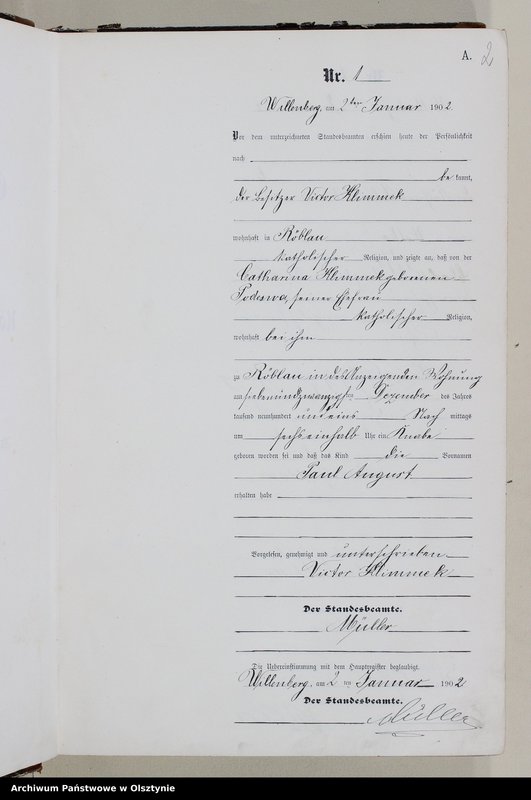 A. 2
Nr. 1
Willenberg, am 2ten Januar 1902.
Vor dem unterzeichneten Standesbeamten erschien heute der Persönlichkeit
nach
bekannt,
der Besitzer Victor Klimmek
wohnhaft in Röblau
katholischer Religion, und zeigte an, daß von der
Catharina Klimmek geborenen
Podeswa, seiner Ehefrau
katholischer Religion,
wohnhaft bei ihm
zu Röblau in des Anzeigenden Wohnung
am siebenundzwanzigsten Dezember des Jahres
tausend neunhundert und eins Nachmittags
um sechs einhalb Uhr ein Knabe
geboren worden sei und daß das Kind die Vornamen
Paul August
erhalten habe
Vorgelesen, genehmigt und unterschrieben
Victor Klimmek
Der Standesbeamte.
Müller
Die Uebereinstimmung mit dem Hauptregister beglaubigt.
Willenberg, am 2ten Januar 1902
Der Standesbeamte.
Müller
Archiwum Państwowe w Olsztynie